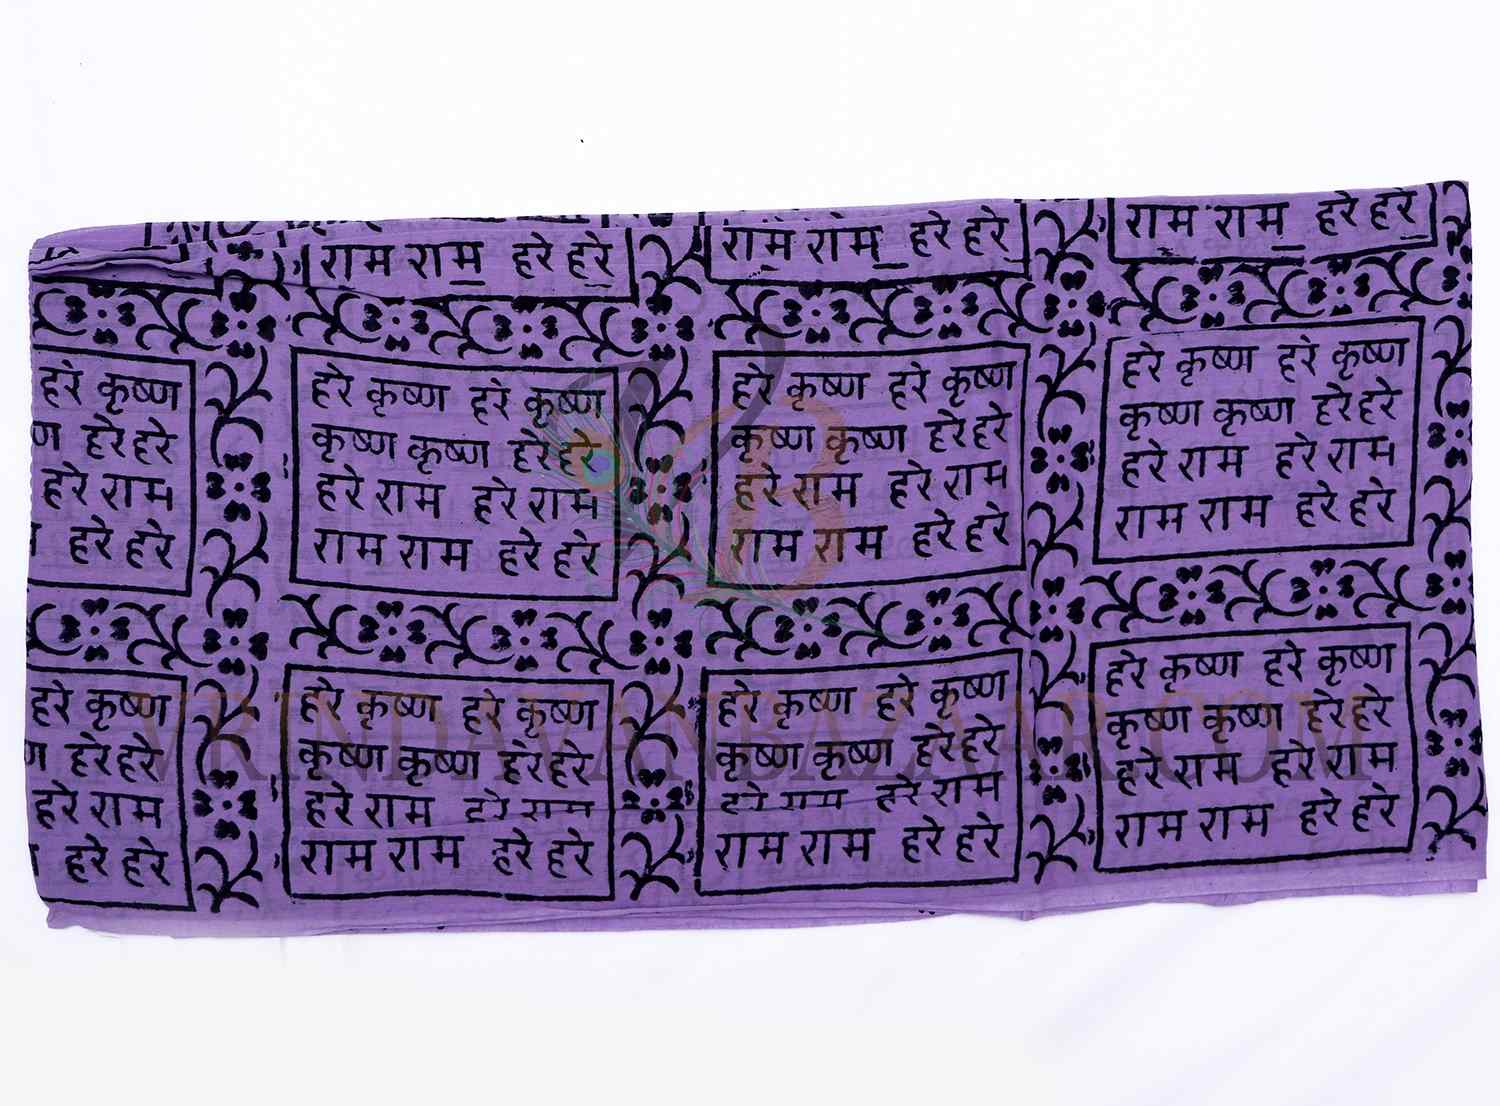 राम राम हरे हरे
राम राम हरे हरे
राम राम हरे हरे
हरे कृष्ण
हरे हरे
हरे राम
हरे हरे
हरे कृष्ण हरे कृष्ण
कृष्ण कृष्ण हरे हरे
हरे राम हरे राम
राम राम हरे हरे
हरे कृष्ण हरे कृष्ण
कृष्ण कृष्ण हरे हरे
हरे राम हरे राम
राम राम हरे हरे
हरे कृष्ण हरे कृष्ण
कृष्ण कृष्ण हरे हरे
हरे राम हरे राम
राम राम हरे हरे
हरे कृष्ण
हरे हरे
हरे राम
हरे हरे
हरे कृष्ण हरे कृष्ण
कृष्ण कृष्ण हरे हरे
हरे राम
राम राम हरे हरे
हरे कृष्ण हरे कृष्ण
कृष्ण कृष्ण हरे हरे
हरे राम
राम राम हरे हरे
हरे कृष्ण हरे कृष्ण
कृष्ण कृष्ण हरे हरे
हरे राम हरे राम
राम राम हरे हरे
VRINDAVANBAZAAR.COM